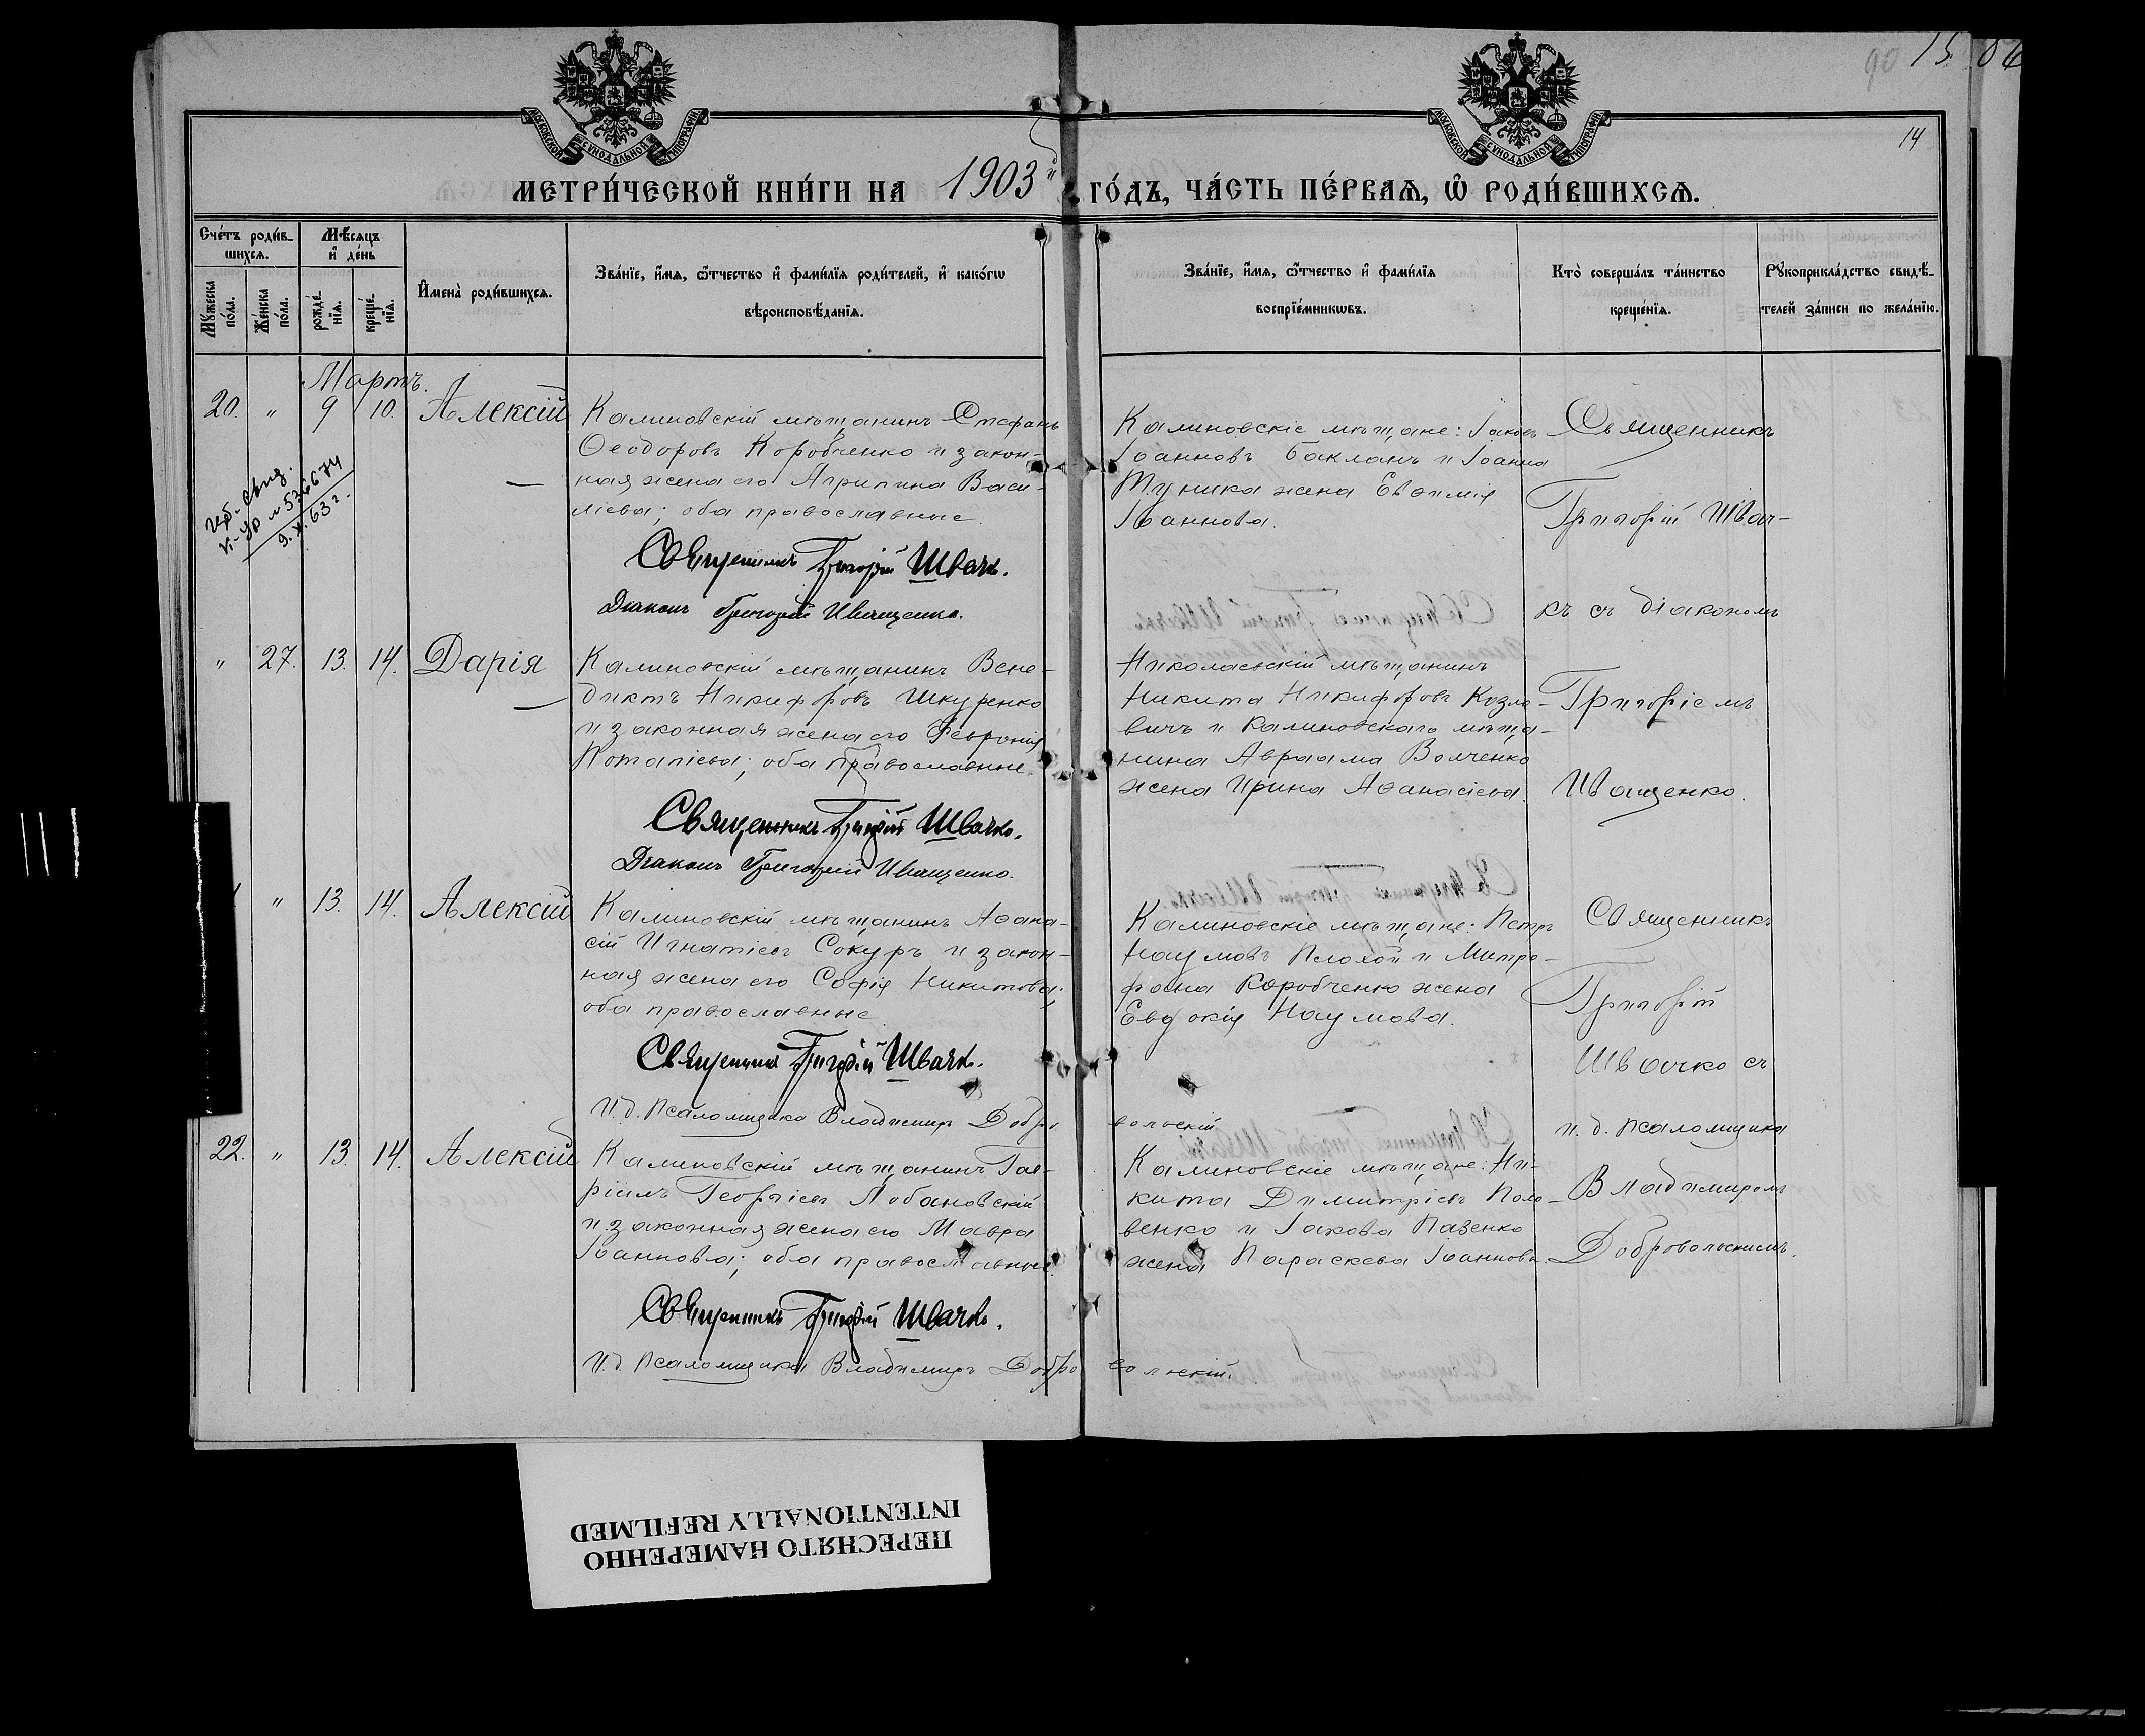 90 15 06
14
МОСКОВСКОЙ СѴНОДАЛЬНОЙ ТИПОГРАФІИ
МОСКОВСКОЙ СѴНОДАЛЬНОЙ ТИПОГРАФІИ
МЕТРИ́ЧЕСКОЙ КНИ́ГИ НА 1903й ГО́ДЪ, ЧА́СТЬ ПЕ́РВАѦ, Ѡ҆ РОДИ́ВШИХСѦ.
Сче́тъ роди́в-
шихсѧ.
Мꙋ́жеска по́ла.
Же́нска по́ла.
Мѣ́сѧцъ
и҆ де́нь
рожде́-
нїѧ.
креще́-
нїѧ.
И҆мена̀ роди́вшихсѧ.
Зва́нїе, и҆́мѧ, ѻ҆́тчество и҆ фами́лїѧ роди́телей, и҆ како́гѡ
вѣроисповѣ́данїѧ.
Зва́нїе, и҆́мѧ, ѻ҆́тчество и҆ фами́лїѧ
воспрїе́мникѡвъ.
Кто̀ соверша́лъ та́инство
креще́нїѧ.
Рꙋкоприкла́дство свидѣ́-
телей за́писи по жела́нїю.
Мартъ.
20. " 9 10. Алексій
Калиновскій мѣщанинъ Стефанъ
Ѳеодоровъ Коробченко и закон-
ная жена его Агрипина Васи-
ліева; оба православные.
Священникъ Григорій Швачко.
Діаконъ Григорій Иващенко.
Калиновскіе мѣщане: Іаковъ
Іоанновъ Бакланъ и Іоанна
жена Евѳимія
Іоаннова.
Священникъ
Григорій Швач-
ко съ діакономъ
Григоріемъ
Иващенко.
Герб. свид.
№ 536674
9.X.63 г.
" 27. 13. 14. Дарія
Калиновскій мѣщанинъ Вене-
диктъ Никифоровъ Шкуренко
и законная жена его Февронія
Потапіева; оба православные.
Священникъ Григорій Швачко.
Діаконъ Григорій Иващенко.
Николаевскій мѣщанинъ
Никита Никифоровъ Козло-
вичъ и Калиновскаго мѣща-
нина Авраама Волченко
жена Ирина Аѳанасіева.
" 13. 14. Алексій
Калиновскій мѣщанинъ Аѳана-
сій Игнатіевъ Сокуръ и закон-
ная жена его Софія Никитова;
оба православные
Священникъ Григорій Швачко.
И. д. Псаломщика Владимиръ Добровольскій
Калиновскіе мѣщане: Петръ
Наумовъ Плохой и Митро-
фана Коробченко жена
Евдокія Наумова.
Священникъ
Григорій
Швачко съ
и. д. псаломщика
Владимиромъ
Добровольскимъ.
22. " 13. 14. Алексій
Калиновскій мѣщанинъ Гав-
ріилъ Георгіевъ Лобановскій
и законная жена его Мавра
Іоаннова; оба православные.
Священникъ Григорій Швачко.
И. д. Псаломщика Владимиръ Добровольскій.
Калиновскіе мѣщане: Ни-
кита Димитріевъ Поло-
венко и Іакова Пазенко
жена Параскева Іоаннова.
ПЕРЕСНЯТО НАМЕРЕННО
INTENTIONALLY REFILMED